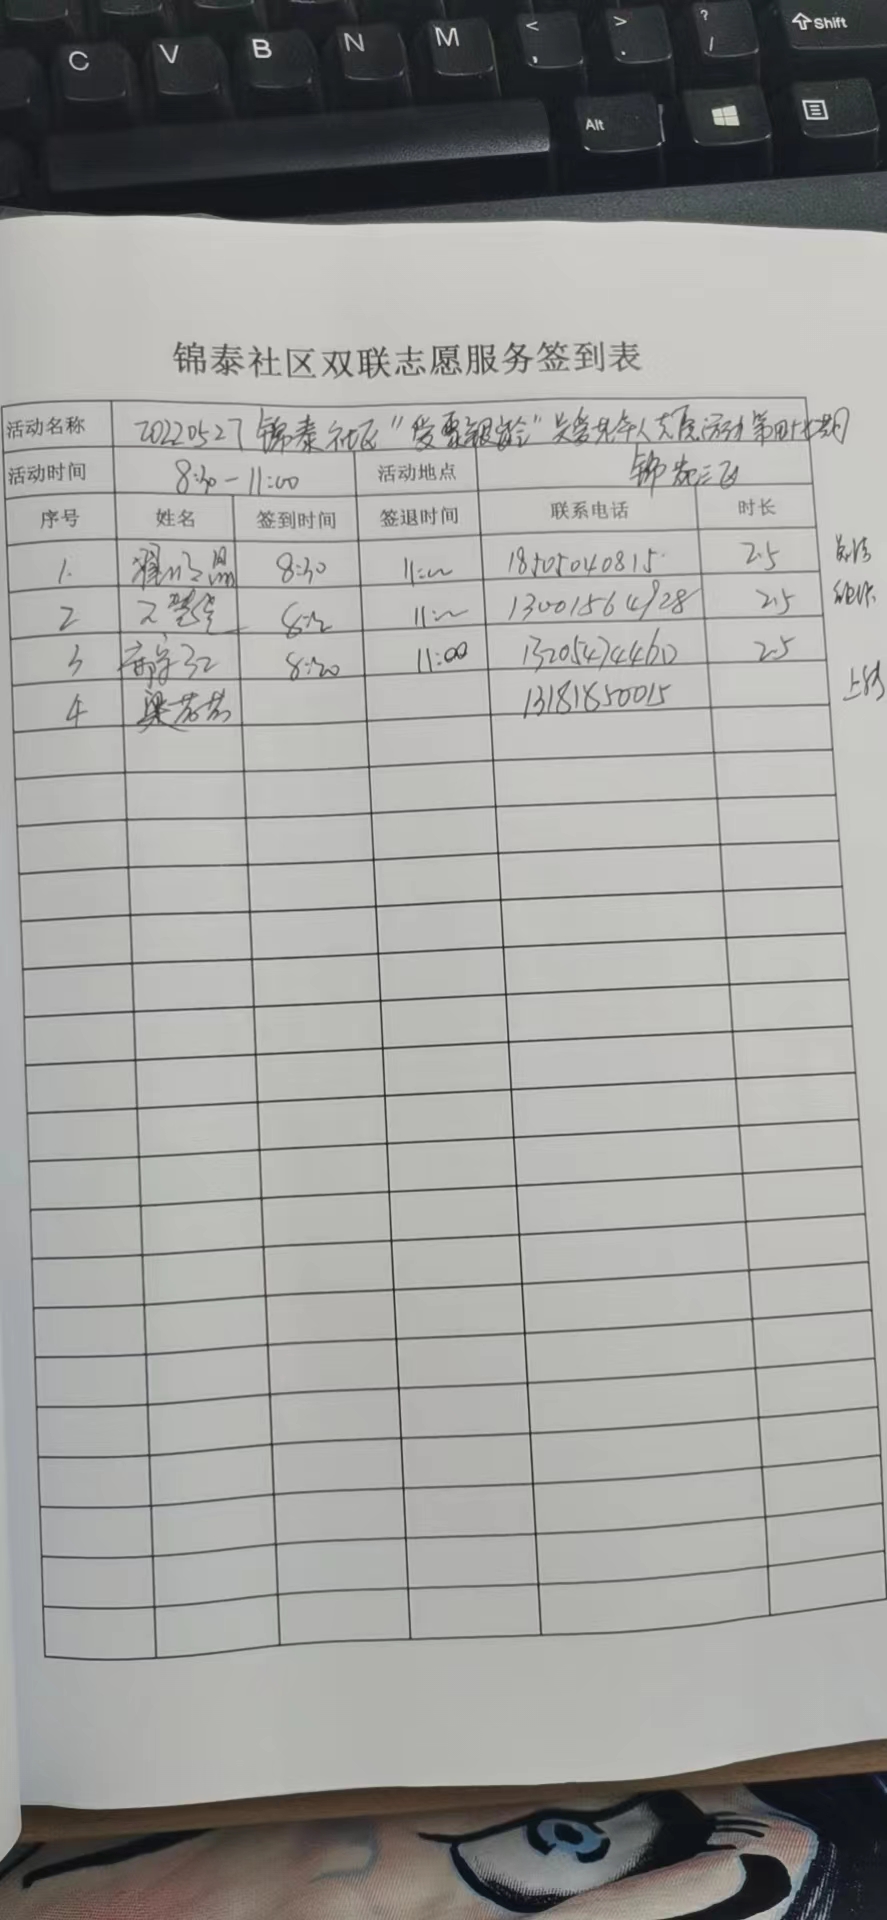 C V B N M < , > . ? / Shift
Alt
锦泰社区双联志愿服务签到表
活动名称 20220527锦泰社区“ 银龄”关爱老年人志愿活动第四十 期
活动时间 8:30-11:00 活动地点 锦 三区
序号 姓名 签到时间 签退时间 联系电话 时长
1. 8:30 11:00 18505040815 2.5
2 11:00 13001564928 2.5
3 8:30 11:00 13205474460 2.5
4 梁芳芳 13181850015